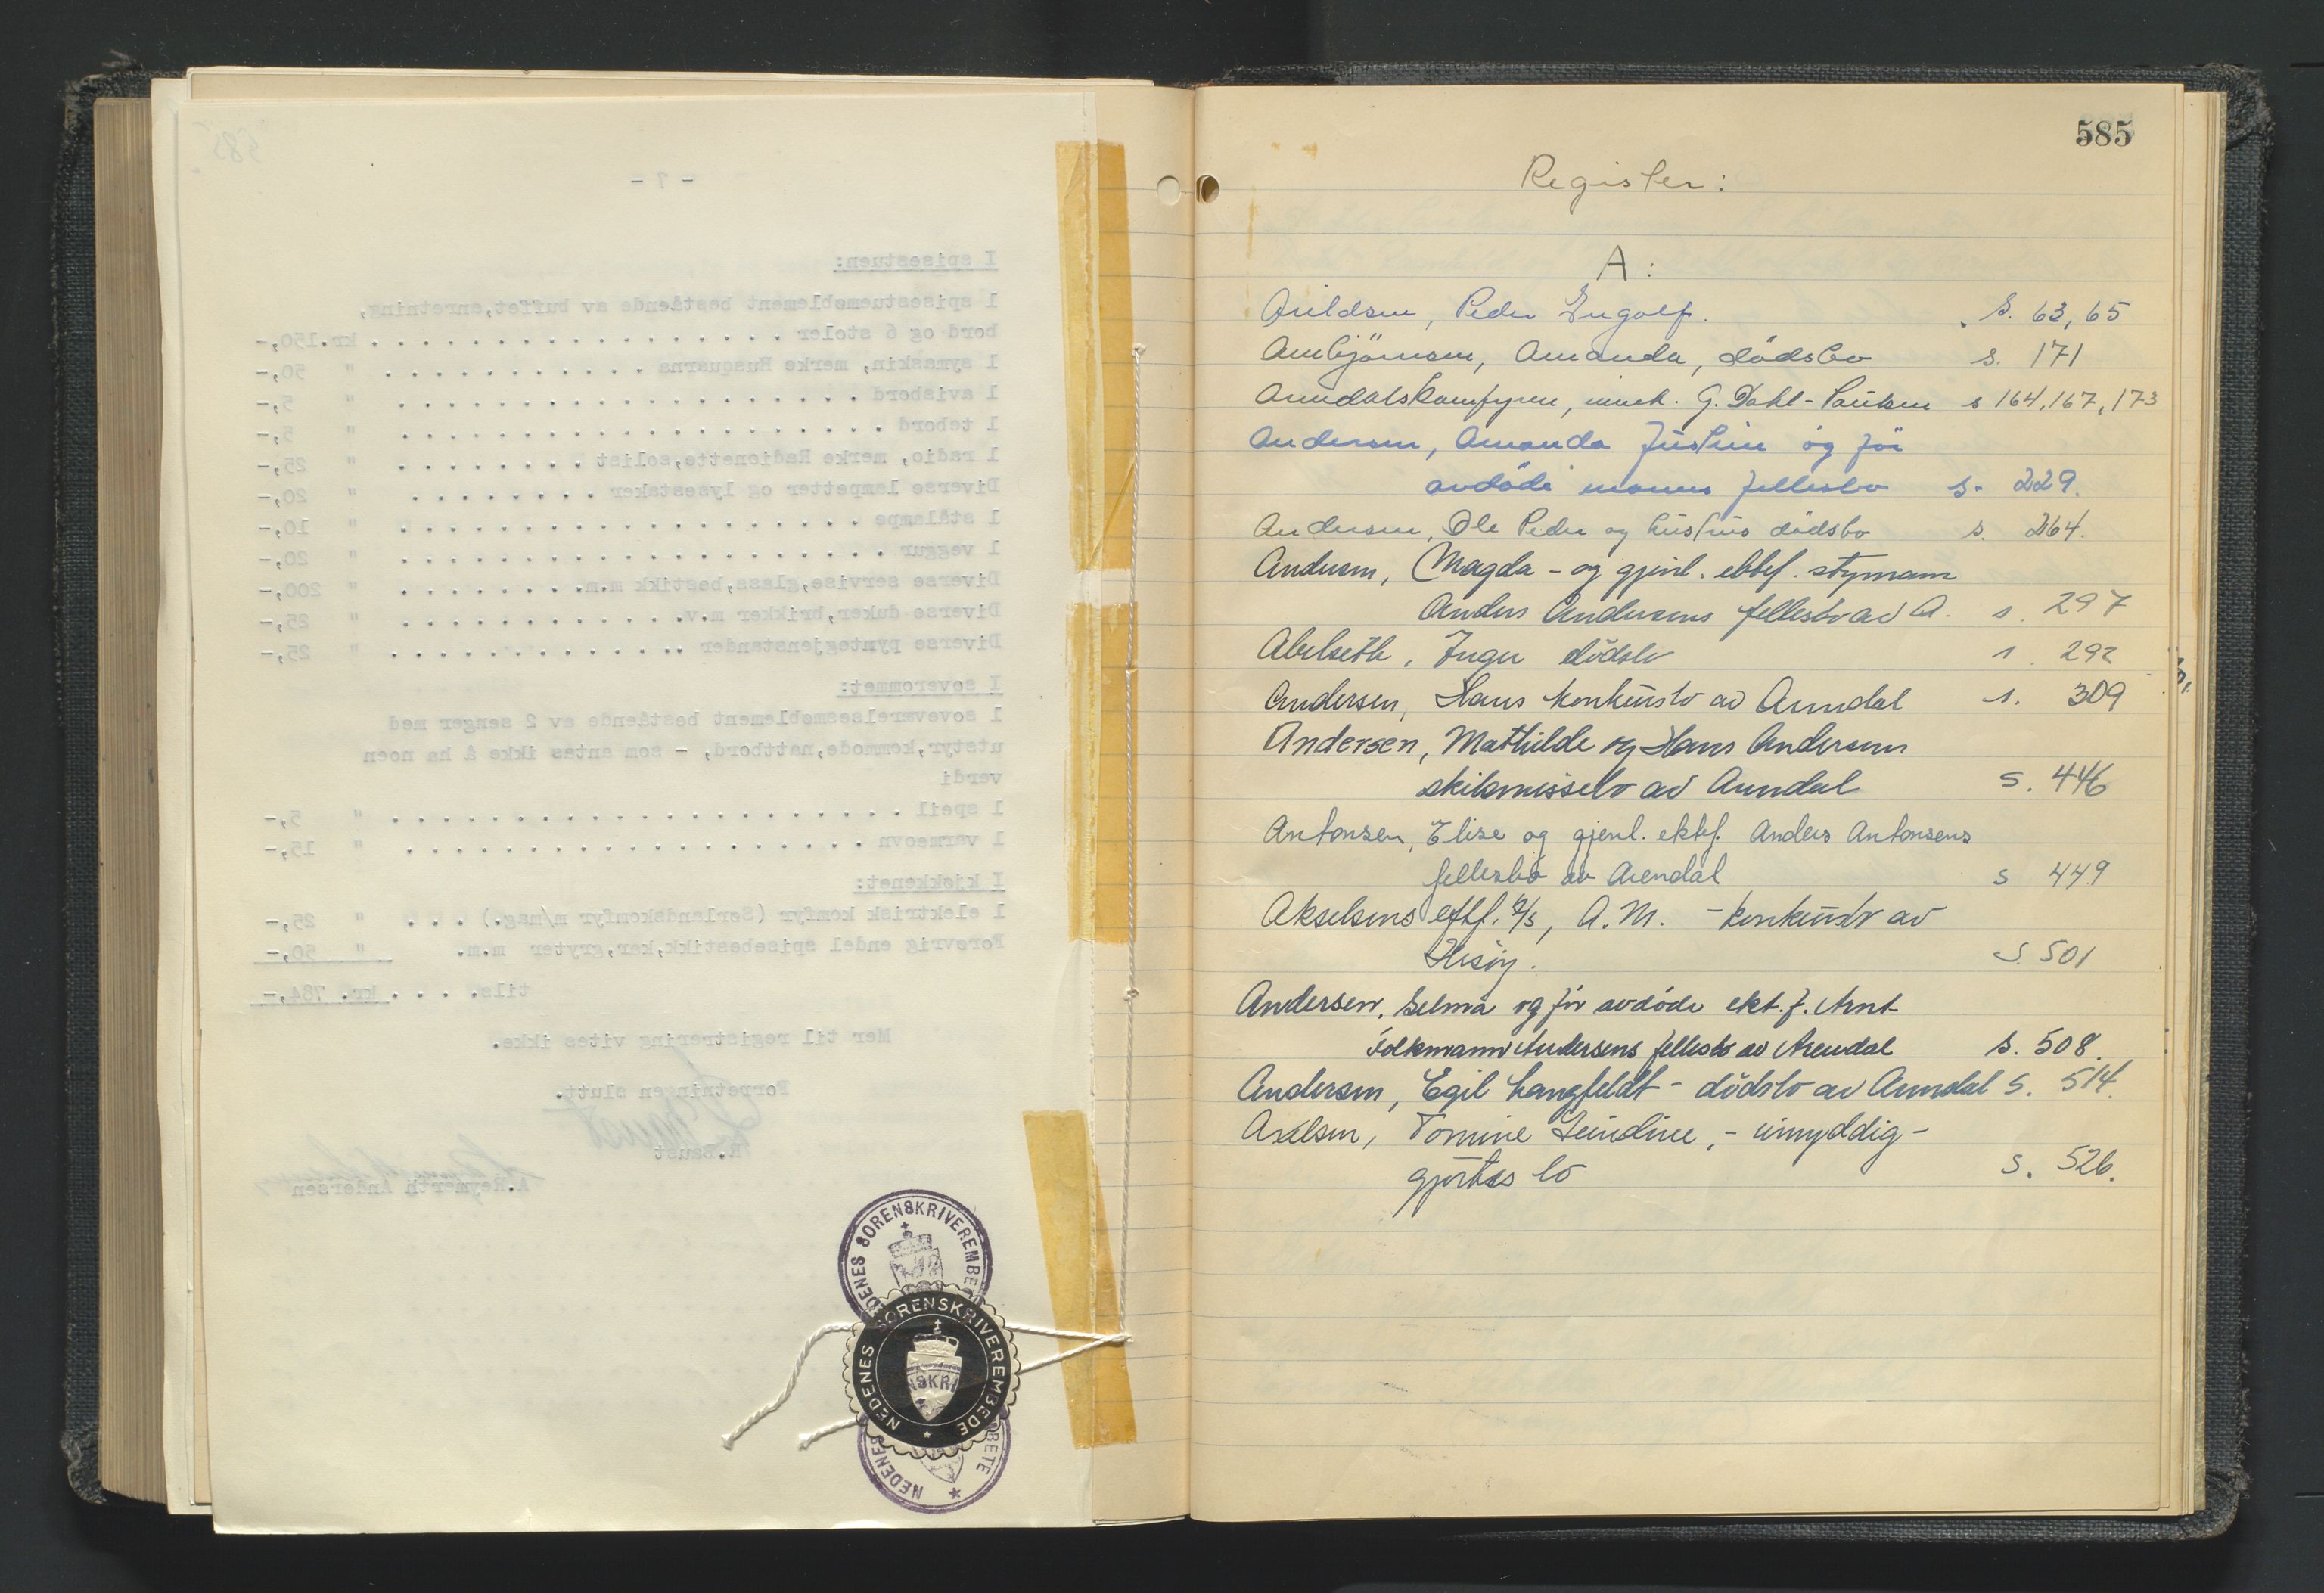 - 1 -
I spisestuen:
1 spisestuemøblement bestående av buffet,anretning,
bord og 6 stoler . . . . . . . . . . . . . . . . . kr.150,-
1 symaskin, merke Husquarna . . . . . . . . . . . " 50,-
1 avisbord . . . . . . . . . . . . . . . . . . . . " 5,-
1 tebord . . . . . . . . . . . . . . . . . . . . . " 5,-
1 radio, merke Radionette,solist . . . . . . . . " 25,-
Diverse lampetter og lysestaker . . . . . . . . " 20,-
1 stålampe . . . . . . . . . . . . . . . . . . . . " 10,-
1 veggur . . . . . . . . . . . . . . . . . . . . . " 20,-
Diverse servise,glass,bestikk m.m. . . . . . . . " 200,-
Diverse duker,brikker m.v. . . . . . . . . . . . " 25,-
Diverse pyntegjenstander . . . . . . . . . . . . " 25,-
I soverommet:
1 soveværelsesmøblement bestående av 2 senger med
utstyr,kommode,nattbord, - som antas ikke å ha noen
verdi
1 speil . . . . . . . . . . . . . . . . . . . . . . " 5,-
1 varmeovn . . . . . . . . . . . . . . . . . . . . " 15,-
I kjøkkenet:
1 elektrisk komfyr (Sørlandskomfyr m/mag.) . . . " 25,-
Forøvrig endel spisebestikk,kar,gryter m.m. " 50,-
tils. . . . . kr. 784,-
Mer til registrering vites ikke.
Forretningen slutt.
R.Saust
A.Reymerth Andersen
NEDENES SORENSKRIVEREMBE
NEDENES SORENSKRIVEREMBEDE
585
Register:
A:
Arildsen, Peder Ingolf. s. 63, 65
Arnbjörnsen, Amanda, dödsbo s. 171
Arendalskomfyren, inneh. G. Dahl-Paulsen s 164, 167, 173
Andersen, Amanda Justine og før
avdöde manns fellesbo s. 229.
Andersen, Ole Peder og hustrus dödsbo s. 264.
Andersen, Magda - og gjenl. ektef. styrmann
Anders Andersens fellesbo av A. s. 297
Abelseth, Inger dödsbo s. 292
Andersen, Hans konkursbo av Arendal s. 309
Andersen, Mathilde og Hans Andersens
skilsmissebo av Arendal s. 446
Antonsen, Elise og gjenl. ektef. Anders Antonsens
fellesbo av Arendal s 449
Akselsens eftf. A/s, A. M. - konkursbo av
Hisöy. s. 501
Andersen, Selma og för avdöde ekt.f. Arnt
Folkmann Andersens fellesbo av Arendal s. 508.
Andersen, Egil Langfeldt - dödsbo av Arendal s. 514.
Axelsen, Tomine - umyndig-
gjortes bo s. 526.